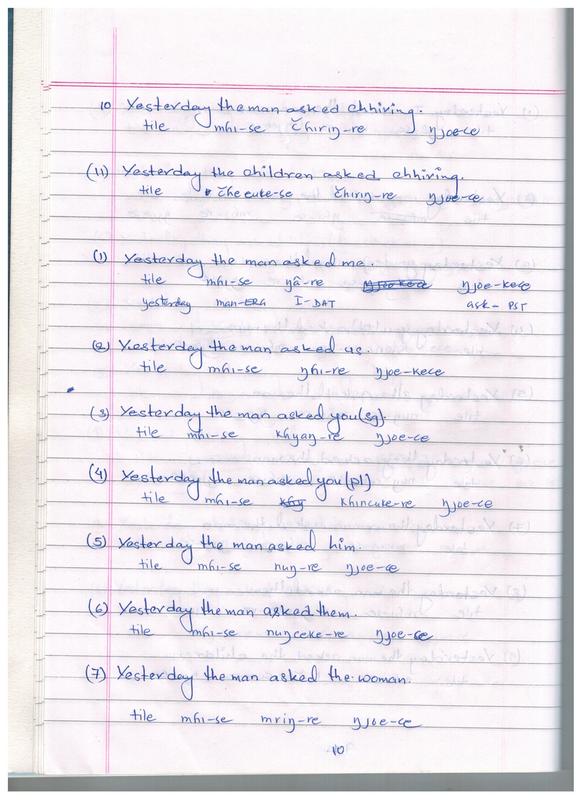 10 Yesterday the man asked chhiring.
tile mɦi-se čhiriŋ-re ŋjoe-ce
(11) Yesterday the children asked chhiring.
tile čhecuke-se čhiriŋ-re ŋjoe-ce
(1) Yesterday the man asked me.
tile mɦi-se ŋâ-re ŋjoe-kece
yesterday man-ERG I-DAT ask-PST
(2) Yesterday the man asked us.
tile mɦi-se ŋɦi-re ŋjoe-kece
(3) Yesterday the man asked you(sg).
tile mɦi-se khyaŋ-re ŋjoe-ce
(4) Yesterday the man asked you(pl)
tile mɦi-se khincuke-re ŋjoe-ce
(5) Yesterday the man asked him.
tile mɦi-se nuŋ-re ŋjoe-ce
(6) Yesterday the man asked them.
tile mɦi-se nuŋceke-re ŋjoe-ce
(7) Yesterday the man asked the woman.
tile mɦi-se mriŋ-re ŋjoe-ce
10